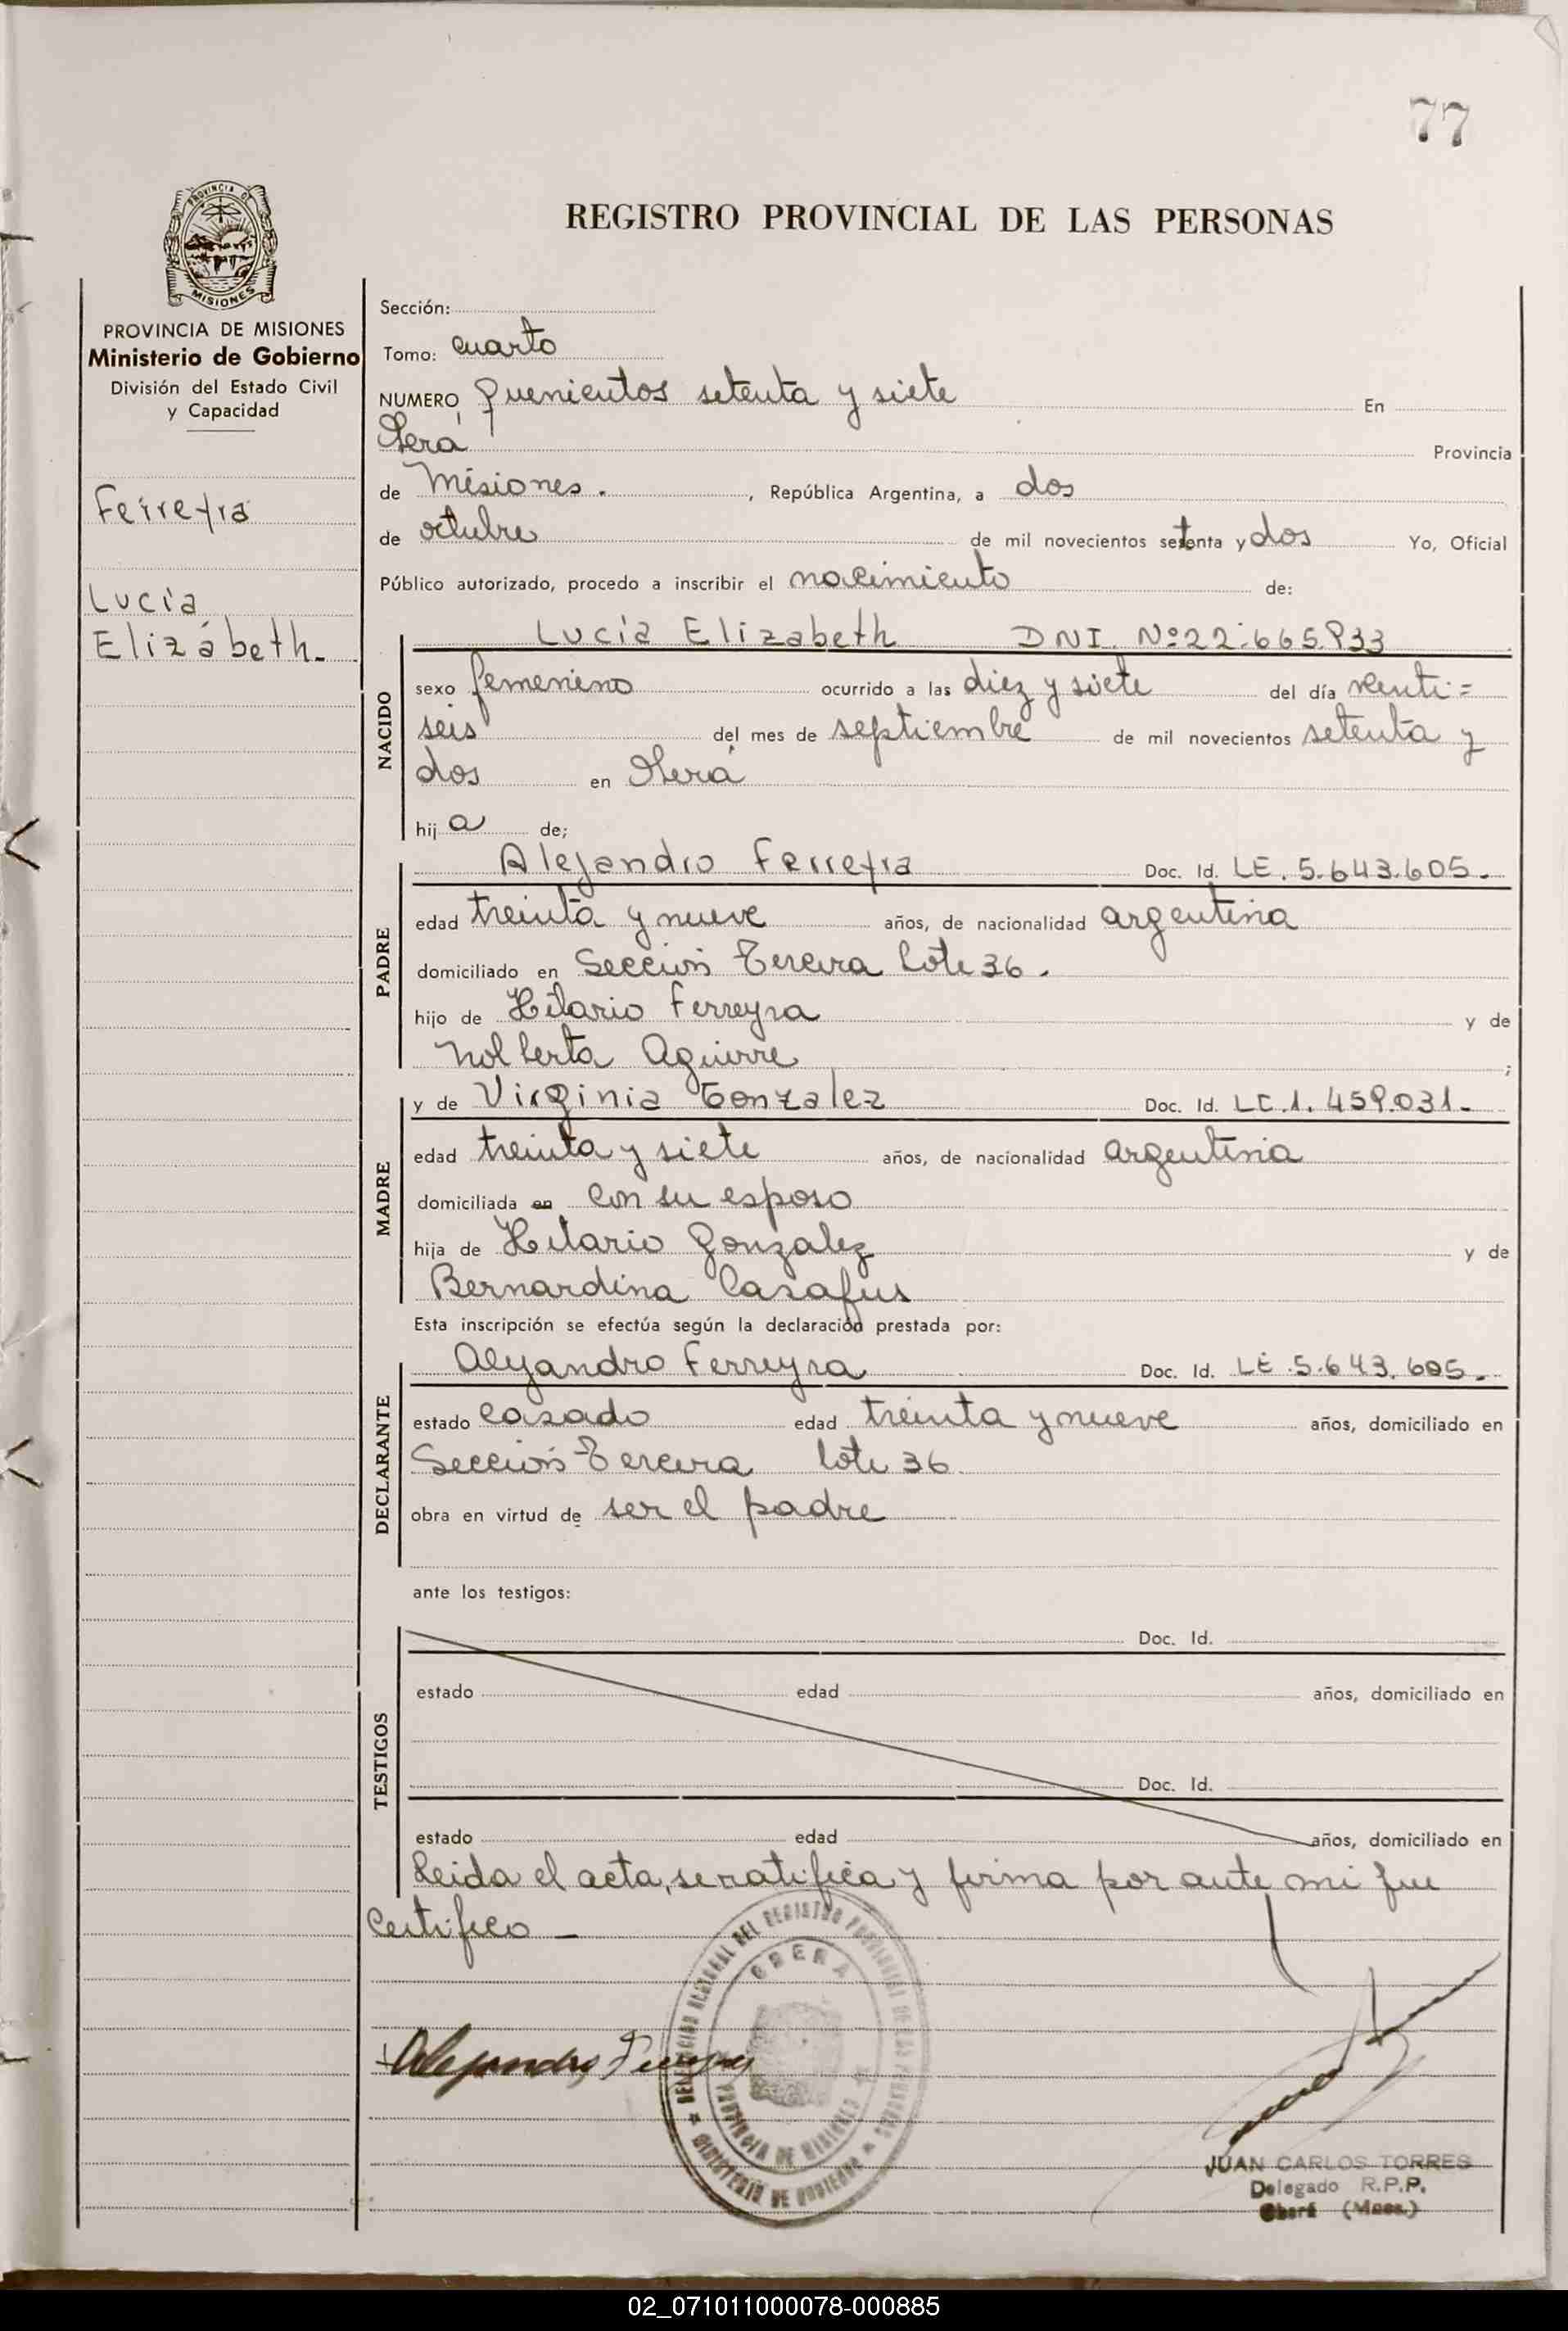 77
PROVINCIA DE
MISIONES
REGISTRO PROVINCIAL DE LAS PERSONAS
PROVINCIA DE MISIONES
Ministerio de Gobierno
División del Estado Civil
y Capacidad
Ferreyra
Lucía
Elizabeth.
Sección:
Tomo: cuarto
NUMERO quinientos setenta y siete En
Oberá Provincia
de Misiones. , República Argentina, a dos
de octubre de mil novecientos setenta y dos Yo, Oficial
Público autorizado, procedo a inscribir el nacimiento de:
Lucía Elizabeth DNI Nº 22.665.933
NACIDO
sexo femenino ocurrido a las diez y siete del día venti=
seis del mes de septiembre de mil novecientos setenta y
dos en Oberá
hij a de;
Alejandro Ferreyra Doc. Id. LE. 5.643.605.
PADRE
edad treinta y nueve años, de nacionalidad argentina
domiciliado en Sección Tercera lote 36.
hijo de Hilario Ferreyra y de
Nolberta Aguirre ;
y de Virginia Gonzalez Doc. Id. LC.1.459.031.
MADRE
edad treinta y siete años, de nacionalidad argentina
domiciliada en con su esposo
hija de Hilario Gonzalez y de
Bernardina Casafus
Esta inscripción se efectúa según la declaración prestada por:
Alejandro Ferreyra Doc. Id. LE 5.643.605.
DECLARANTE
estado casado edad treinta y nueve años, domiciliado en
Sección Tercera lote 36
obra en virtud de ser el padre
ante los testigos:
Doc. Id.
TESTIGOS
estado edad años, domiciliado en
Doc. Id.
estado edad años, domiciliado en
Leida el acta, se ratifica y firma por ante mi que
certifico _
Alejandro Ferreyra
OBERA
PROVINCIA DE MISIONES
MINISTERIO DE GOBIERNO
JUAN CARLOS TORRES
Delegado R.P.P.
Oberá (Mnes.)
02_071011000078-000885